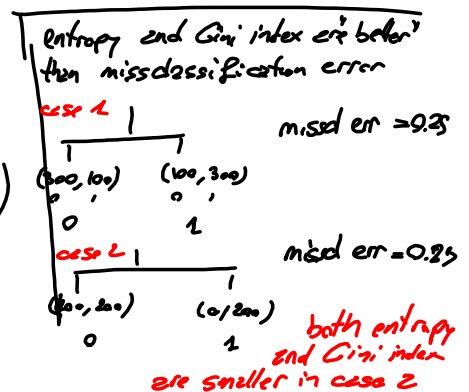 entropy and Gini index are "better"
than missclassification error
case 1
missd err = 0.25
(300, 100) (100, 300)
0 1 0 1
0 1
case 2
missd err = 0.25
(400, 200) (0, 200)
0 1
both entropy
and Gini index
are smaller in case 2